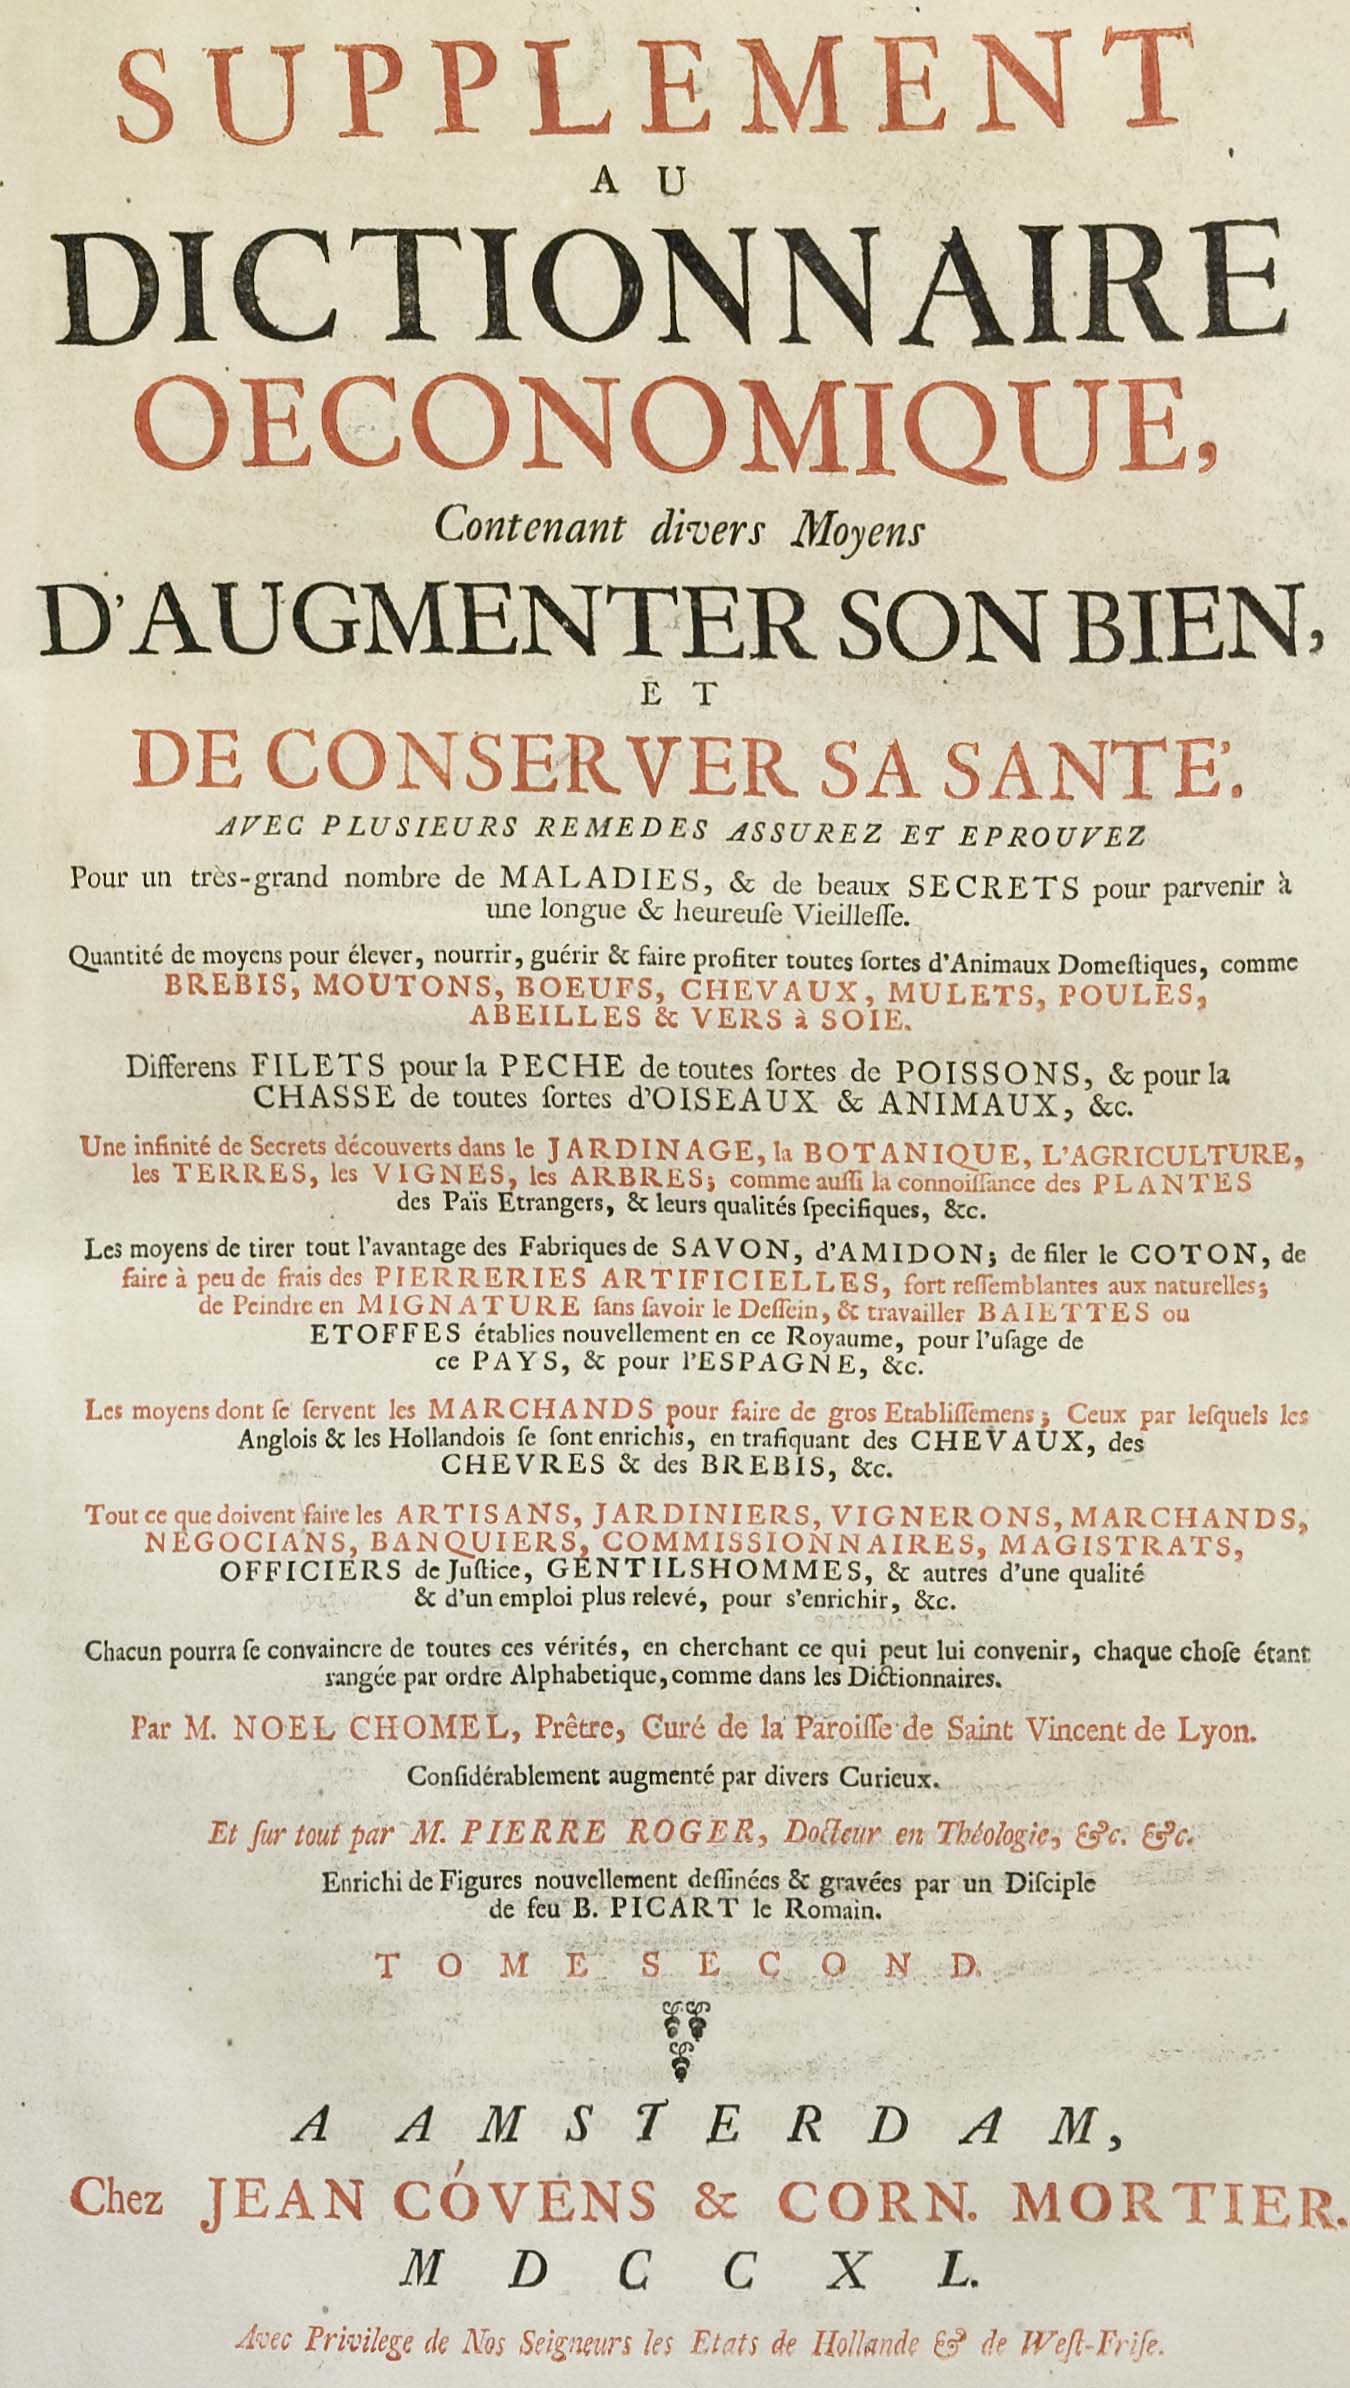 SUPPLEMENT
AU
DICTIONNAIRE
OECONOMIQUE,
Contenant divers Moyens
D'AUGMENTER SON BIEN,
ET
DE CONSERVER SA SANTE'.
AVEC PLUSIEURS REMEDES ASSUREZ ET EPROUVEZ
Pour un très-grand nombre de MALADIES, & de beaux SECRETS pour parvenir à
une longue & heureuſe Vieilleſſe.
Quantité de moyens pour élever, nourrir, guérir & faire profiter toutes ſortes d'Animaux Domeſtiques, comme
BREBIS, MOUTONS, BOEUFS, CHEVAUX, MULETS, POULES,
ABEILLES & VERS à SOIE.
Differens FILETS pour la PECHE de toutes ſortes de POISSONS, & pour la
CHASSE de toutes ſortes d'OISEAUX & ANIMAUX, &c.
Une infinité de Secrets découverts dans le JARDINAGE, la BOTANIQUE, L'AGRICULTURE,
les TERRES, les VIGNES, les ARBRES; comme auſſi la connoiſſance des PLANTES
des Païs Etrangers, & leurs qualités ſpecifiques, &c.
Les moyens de tirer tout l'avantage des Fabriques de SAVON, d'AMIDON; de filer le COTON, de
faire à peu de frais des PIERRERIES ARTIFICIELLES, fort reſſemblantes aux naturelles;
de Peindre en MIGNATURE ſans ſavoir le Deſſein, & travailler BAIETTES ou
ETOFFES établies nouvellement en ce Royaume, pour l'uſage de
ce PAYS, & pour l'ESPAGNE, &c.
Les moyens dont ſe ſervent les MARCHANDS pour faire de gros Etabliſſemens; Ceux par leſquels les
Anglois & les Hollandois ſe ſont enrichis, en trafiquant des CHEVAUX, des
CHEVRES & des BREBIS, &c.
Tout ce que doivent faire les ARTISANS, JARDINIERS, VIGNERONS, MARCHANDS,
NEGOCIANS, BANQUIERS, COMMISSIONNAIRES, MAGISTRATS,
OFFICIERS de Juſtice, GENTILSHOMMES, & autres d'une qualité
& d'un emploi plus relevé, pour s'enrichir, &c.
Chacun pourra ſe convaincre de toutes ces vérités, en cherchant ce qui peut lui convenir, chaque choſe étant
rangée par ordre Alphabetique, comme dans les Dictionnaires.
Par M. NOEL CHOMEL, Prêtre, Curé de la Paroiſſe de Saint Vincent de Lyon.
Conſidérablement augmenté par divers Curieux.
Et ſur tout par M. PIERRE ROGER, Docteur en Théologie, &c. &c.
Enrichi de Figures nouvellement deſſinées & gravées par un Diſciple
de feu B. PICART le Romain.
TOME SECOND.
A AMSTERDAM,
Chez JEAN CÓVENS & CORN. MORTIER.
MDCCXL.
Avec Privilege de Nos Seigneurs les Etats de Hollande & de Weſt-Friſe.